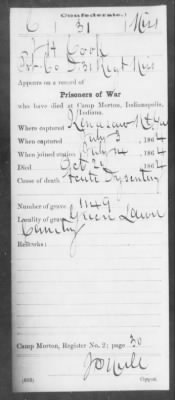 Confederate.
C 31 Miss
H Cook
Pvt Co 31 Regt Miss
Appears on a record of
Prisoners of War
who have died at Camp Morton, Indianapolis,
Indiana.
Where captured Kenesaw Mt Ga
When captured July 3, 1864
When joined station July 14, 1864
Died Oct 26, 1864
Cause of death Acute Dysentery
Number of grave 1149
Locality of grave Green Lawn
Cemetery
Remarks:
Camp Morton, Register No. 2; page 30
Copyist.